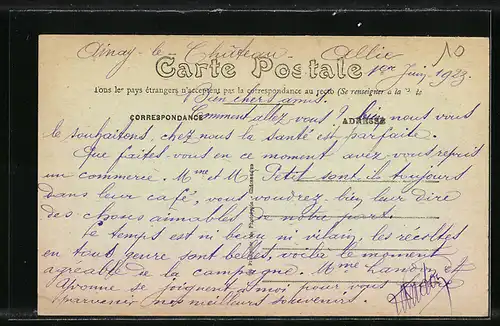 Ainay-le-Château - Allier
10
Carte Postale
1er Juin 1923
Tous les pays étrangers n'acceptent pas la correspondance au recto (Se renseigner à la
Bien chers amis.
CORRESPONDANCE
ADRESSE
Comment allez-vous? bien nous vous
le souhaitons, chez nous la santé est parfaite.
Que faites-vous en ce moment avez vous repris
un commerce. Mme et M Petit sont ils toujours
dans leur café, vous voudrez bien leur dire
des choses aimables de notre part.
Le temps est ni beau ni vilain, les récoltes
en tout genre sont belles, voici le moment
agréable de la campagne. Mme et
Yvonne se joignent à moi pour vous
parvenir nos meilleurs souvenirs.